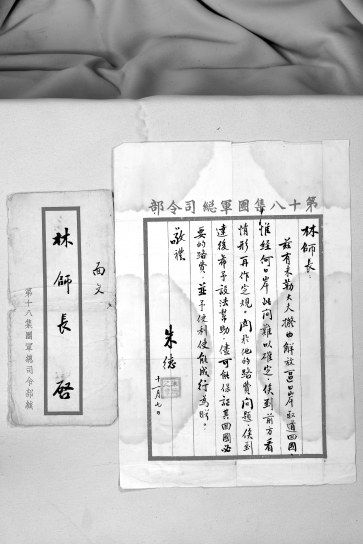 第十八集團軍總司令部
林師長：
茲有米勒大夫擬由解放區口岸取道回國
惟經何口岸此間難以確定，俟到前方看
情形再作定規。關於他的路費問題，俟到
達後希予設法幫助，儘可能保証其回國必
要的路費，並予便利使能成行為盼。
敬禮
朱德
十一月七日
面交
林師長 啓
第十八集團軍總司令部緘